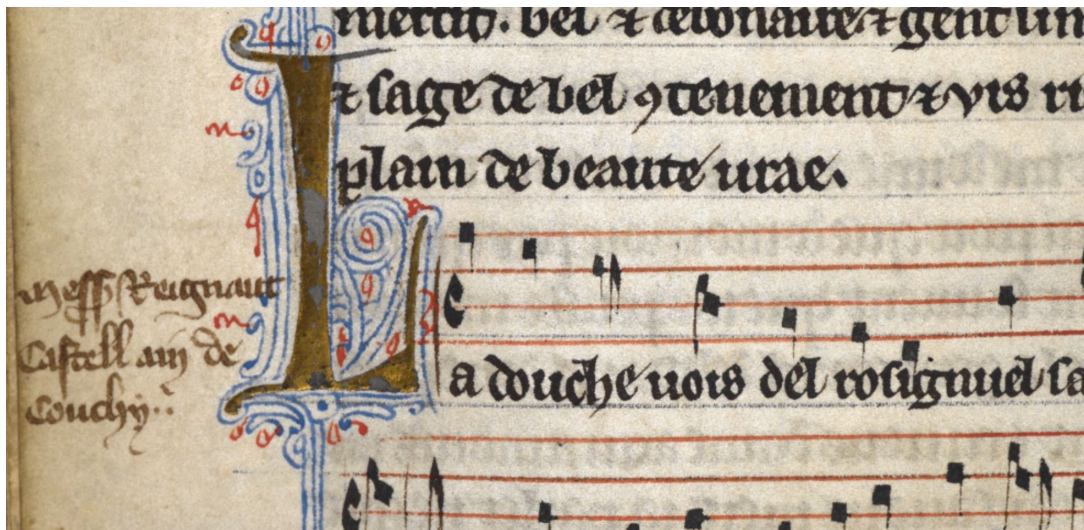 mercit. bel ⁊ debonaire ⁊ gent
⁊ sage de bel ꝯtenement ⁊ vis ri
plain de beaute urae.
Messꝭ Reignaut
Castellain de
Couchy
La douche uois del rosignuel sa